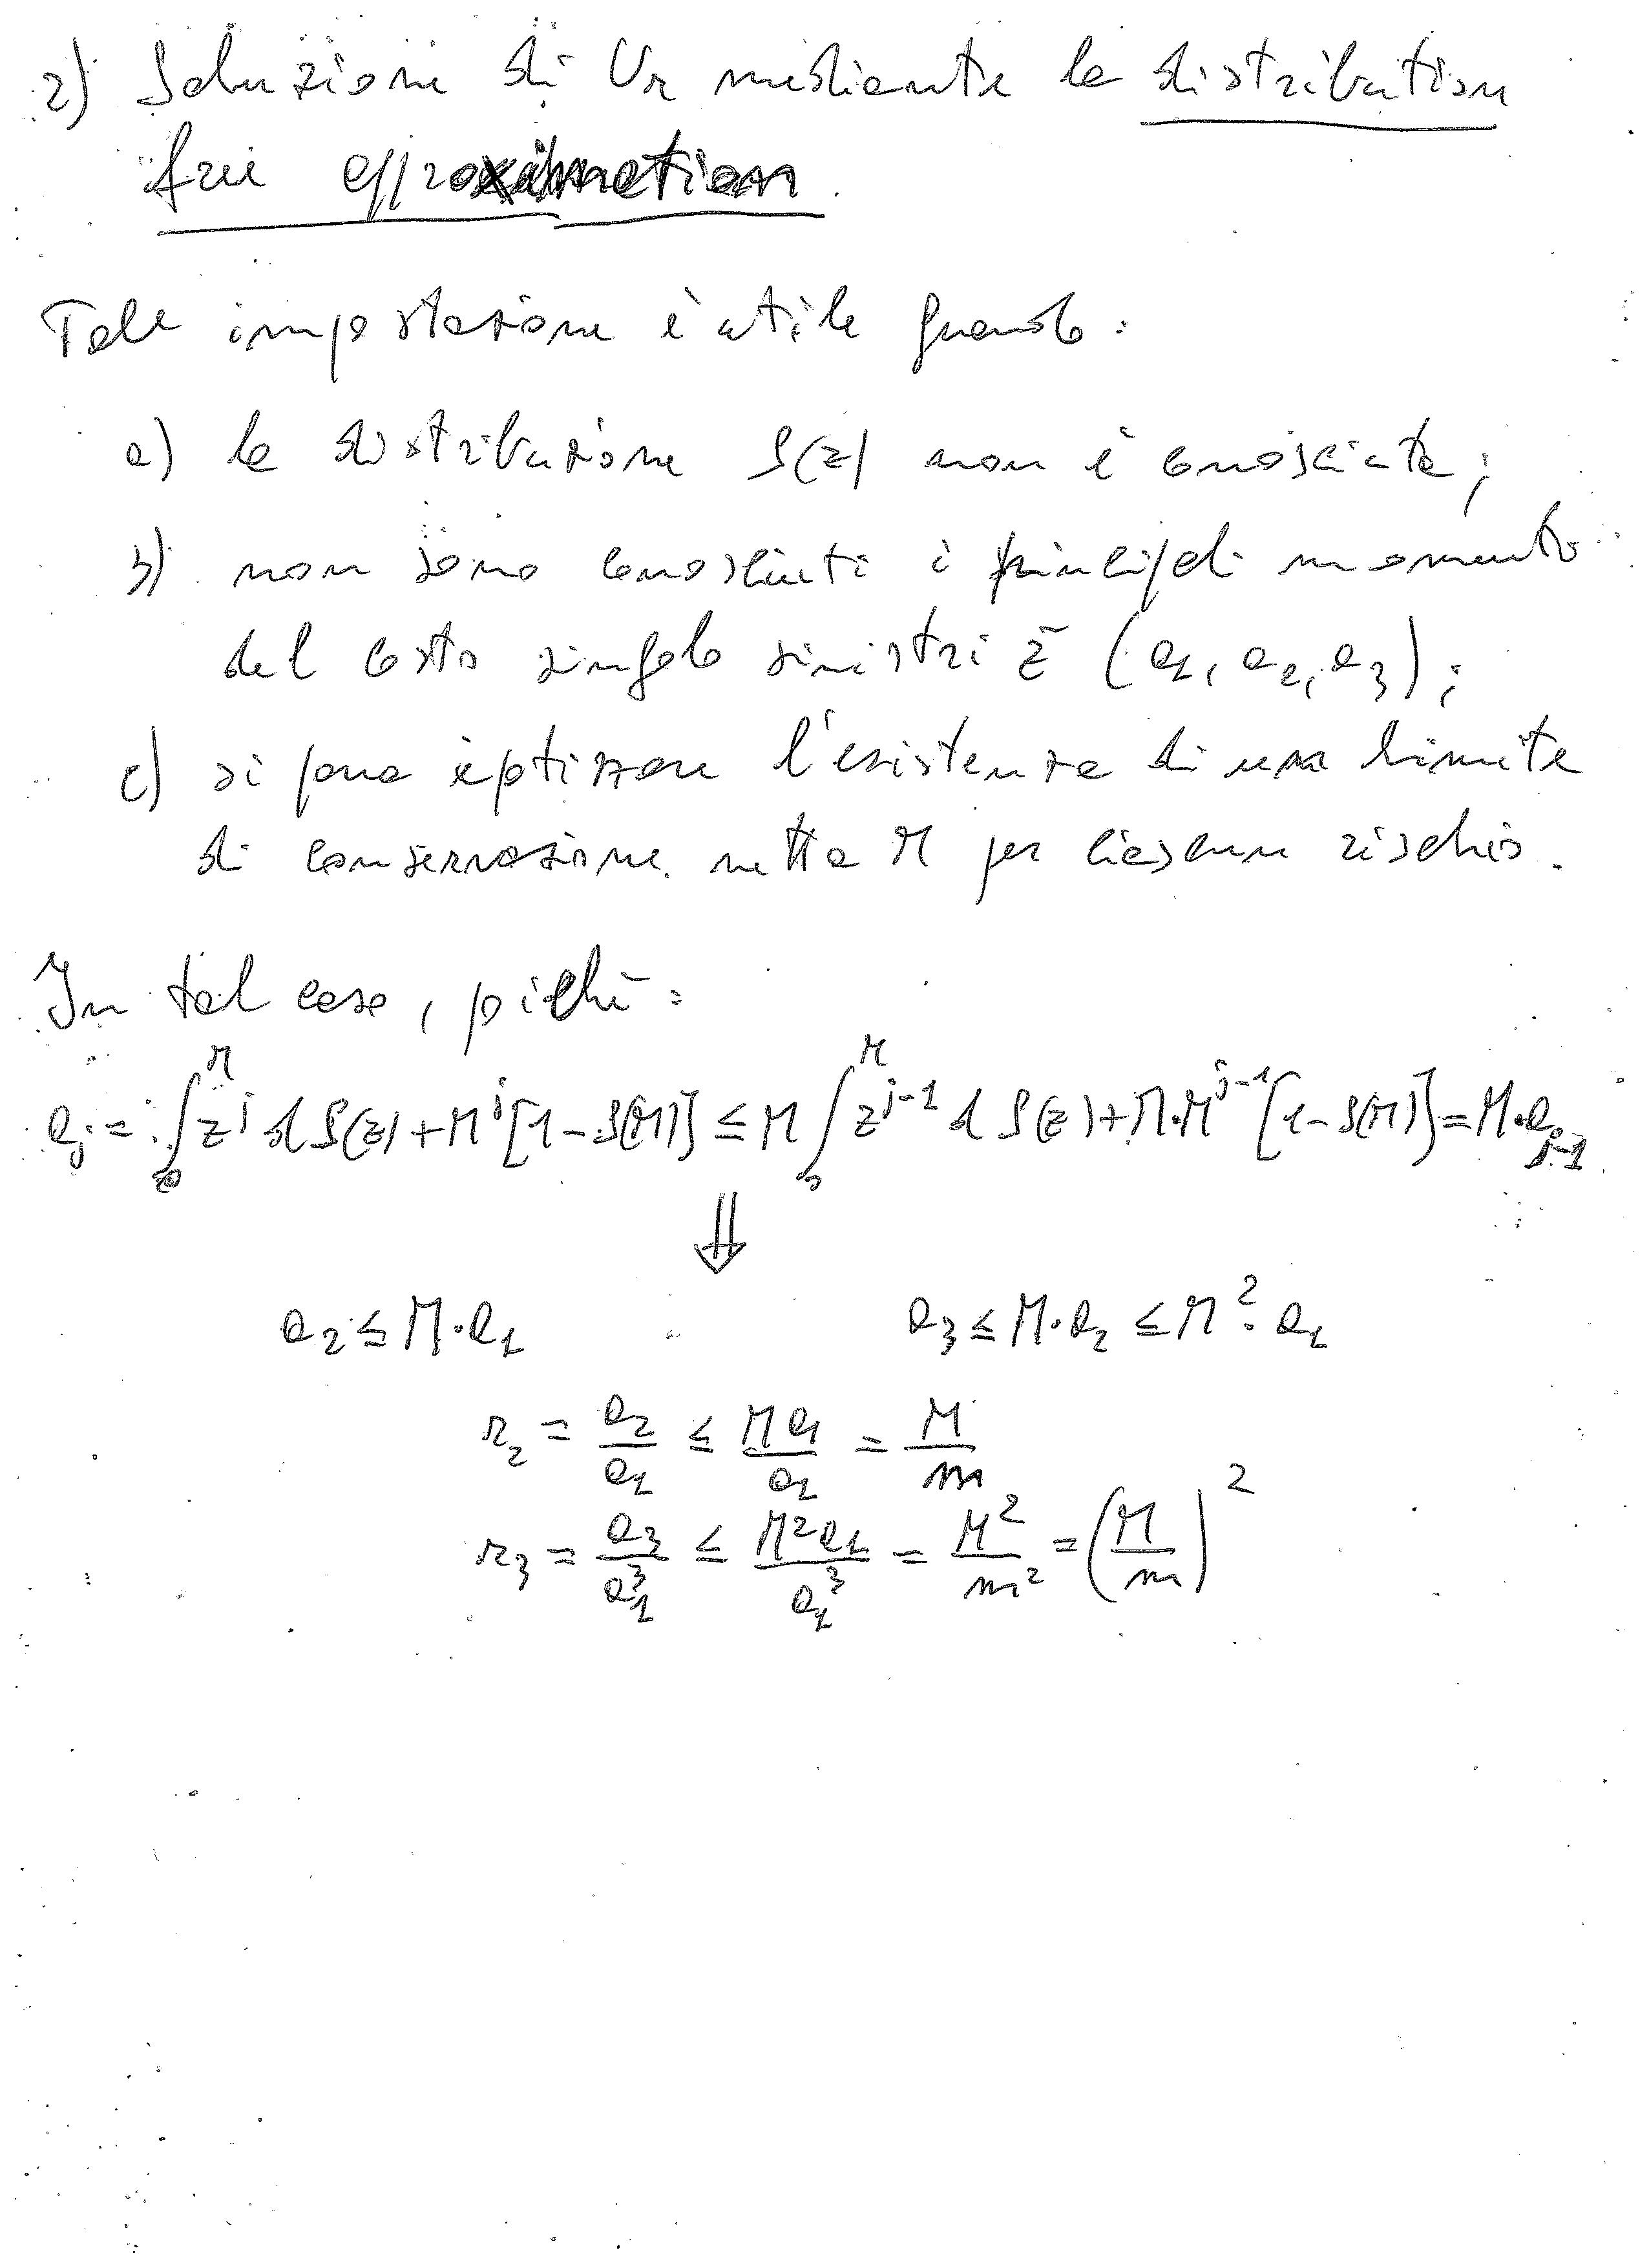 2) Soluzione di Ur mediante la distribution
free approximation.
Tale impostazione è utile quando:
a) la distribuzione S(z) non è conosciuta;
b) non sono conosciuti i principali momenti
del costo singolo sinistri z̃ (a₁, a₂, a₃);
c) si può ipotizzare l'esistenza di un limite
di conservazione netta M per ciascun rischio.
In tal caso, poichè:
aⱼ = ∫₀ᴹ zʲ d S(z) + Mʲ[1-S(M)] ≤ M ∫₀ᴹ zʲ⁻¹ d S(z) + M·Mʲ⁻¹[1-S(M)] = M·aⱼ₋₁
⇓
a₂ ≤ M·a₁ a₃ ≤ M·a₂ ≤ M²·a₁
r₂ = a₂/a₁ ≤ Ma₁/a₁ = M/m
r₃ = a₃/a₁³ ≤ M²a₁/a₁³ = M²/m² = (M/m)²